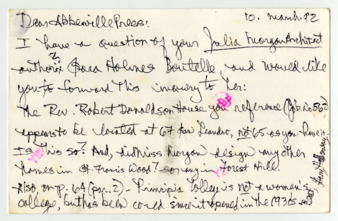 Dear Abbeville Press: 10. march. 92
I have a question of your Julia Morgan Architect
author (Sara Holmes Boutelle) and would like
you to forward this inquiry to her:
The Rev. Robert Donaldson House you reference (Job No. 56
appears to be located at 67 San Leandro, not 65 as you have it.
Is this so? And, did Miss Morgan design any other
homes in St. Francis Wood? or any in Forest Hill.
Also, on p. 64 (par. 2). Principia College is not a women's
college, but has been coed since it opened in the 1930s